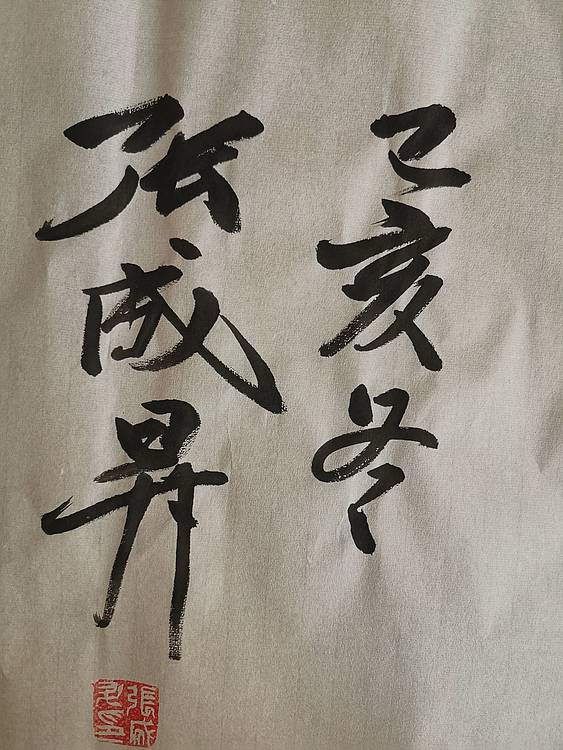 己亥冬
張成昇
張成
昇印